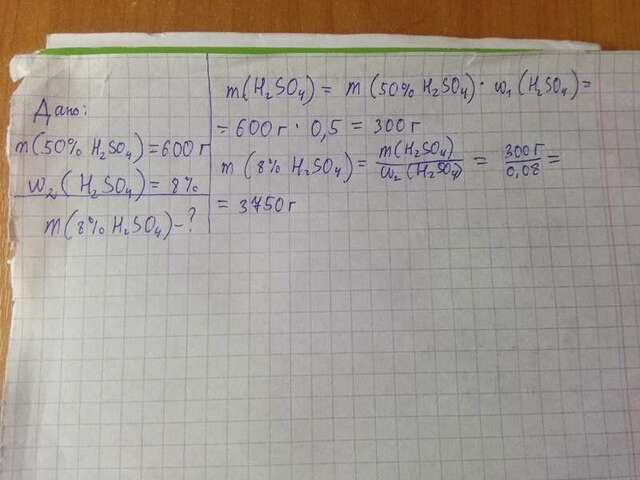 Дано:
m(50% H₂SO₄)=600г
w₂(H₂SO₄)=8%
m(8% H₂SO₄)-?
m(H₂SO₄) = m(50% H₂SO₄)·w₁(H₂SO₄)=
= 600г · 0,5 = 300г
m(8% H₂SO₄)= m(H₂SO₄)/w₂(H₂SO₄) = 300г/0,08 =
= 3750г